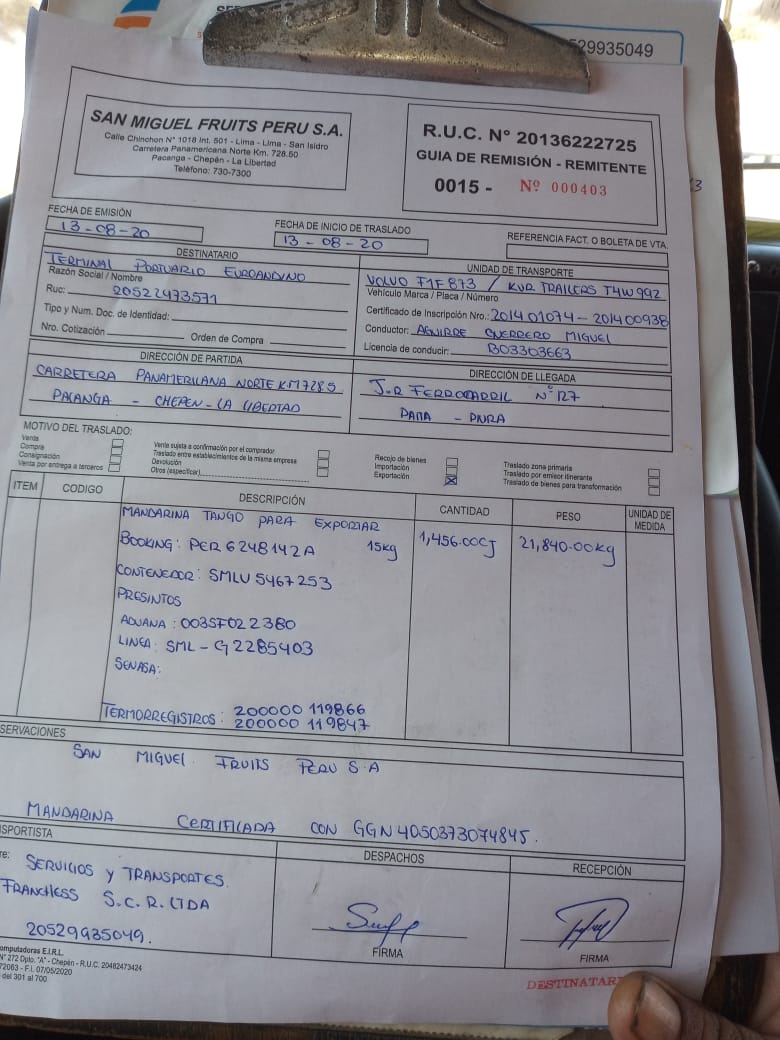 529935049
SAN MIGUEL FRUITS PERU S.A.
Calle Chinchon N° 1018 Int. 501 - Lima - Lima - San Isidro
Carretera Panamericana Norte Km. 728.50
Pacanga - Chepén - La Libertad
Teléfono: 730-7300
R.U.C. N° 20136222725
GUIA DE REMISIÓN - REMITENTE
0015 - Nº 000403
FECHA DE EMISIÓN
13-08-20
FECHA DE INICIO DE TRASLADO
13-08-20
REFERENCIA FACT. O BOLETA DE VTA.
DESTINATARIO
TERMINAL PORTUARIO EUROANDINO
Razón Social / Nombre
Ruc: 20522473571
Tipo y Num. Doc. de Identidad:
Nro. Cotización Orden de Compra
UNIDAD DE TRANSPORTE
VOLVO F1F813 / KUR TRAILERS T4W992
Vehículo Marca / Placa / Número
Certificado de Inscripción Nro.: 201401074-201400938
Conductor: AGUIRRE GUERRERO MIGUEL
Licencia de conducir: B03303663
DIRECCIÓN DE PARTIDA
CARRETERA PANAMERICANA NORTE KM7285
PACANGA - CHEPEN - LA LIBERTAD
DIRECCIÓN DE LLEGADA
J.R FERROCARRIL N° 127
PAITA - PIURA
MOTIVO DEL TRASLADO:
Venta
Compra
Consignación
Venta por entrega a terceros
Venta sujeta a confirmación por el comprador
Traslado entre establecimientos de la misma empresa
Devolución
Otros (especificar)
Recojo de bienes
Importación
Exportación X
Traslado zona primaria
Traslado por emisor itinerante
Traslado de bienes para transformación
ITEM CODIGO DESCRIPCIÓN CANTIDAD PESO UNIDAD DE MEDIDA
MANDARINA TANGO PARA EXPORTAR
BOOKING: PER6248142A 15kg 1,456.00CJ 21,840.00kg
CONTENEDOR: SMLU 5467253
PRESINTOS
ADUANA: 0035F022380
LINEA: SML-G2285403
SENASA:
TERMORREGISTROS: 200000 119866
200000 119847
SERVACIONES
SAN MIGUEL FRUITS PERU S.A
MANDARINA CERTIFICADA CON GGN 4050373074845.
SPORTISTA
re: SERVICIOS y TRANSPORTES.
FRANCHESS S.C.R.LTDA
20529935049.
DESPACHOS
FIRMA
RECEPCIÓN
FIRMA
omputadoras E.I.R.L.
N° 272 Dpto. "A" - Chepén - R.U.C. 20482473424
72063 - F.I. 07/05/2020
del 301 al 700
DESTINATAR